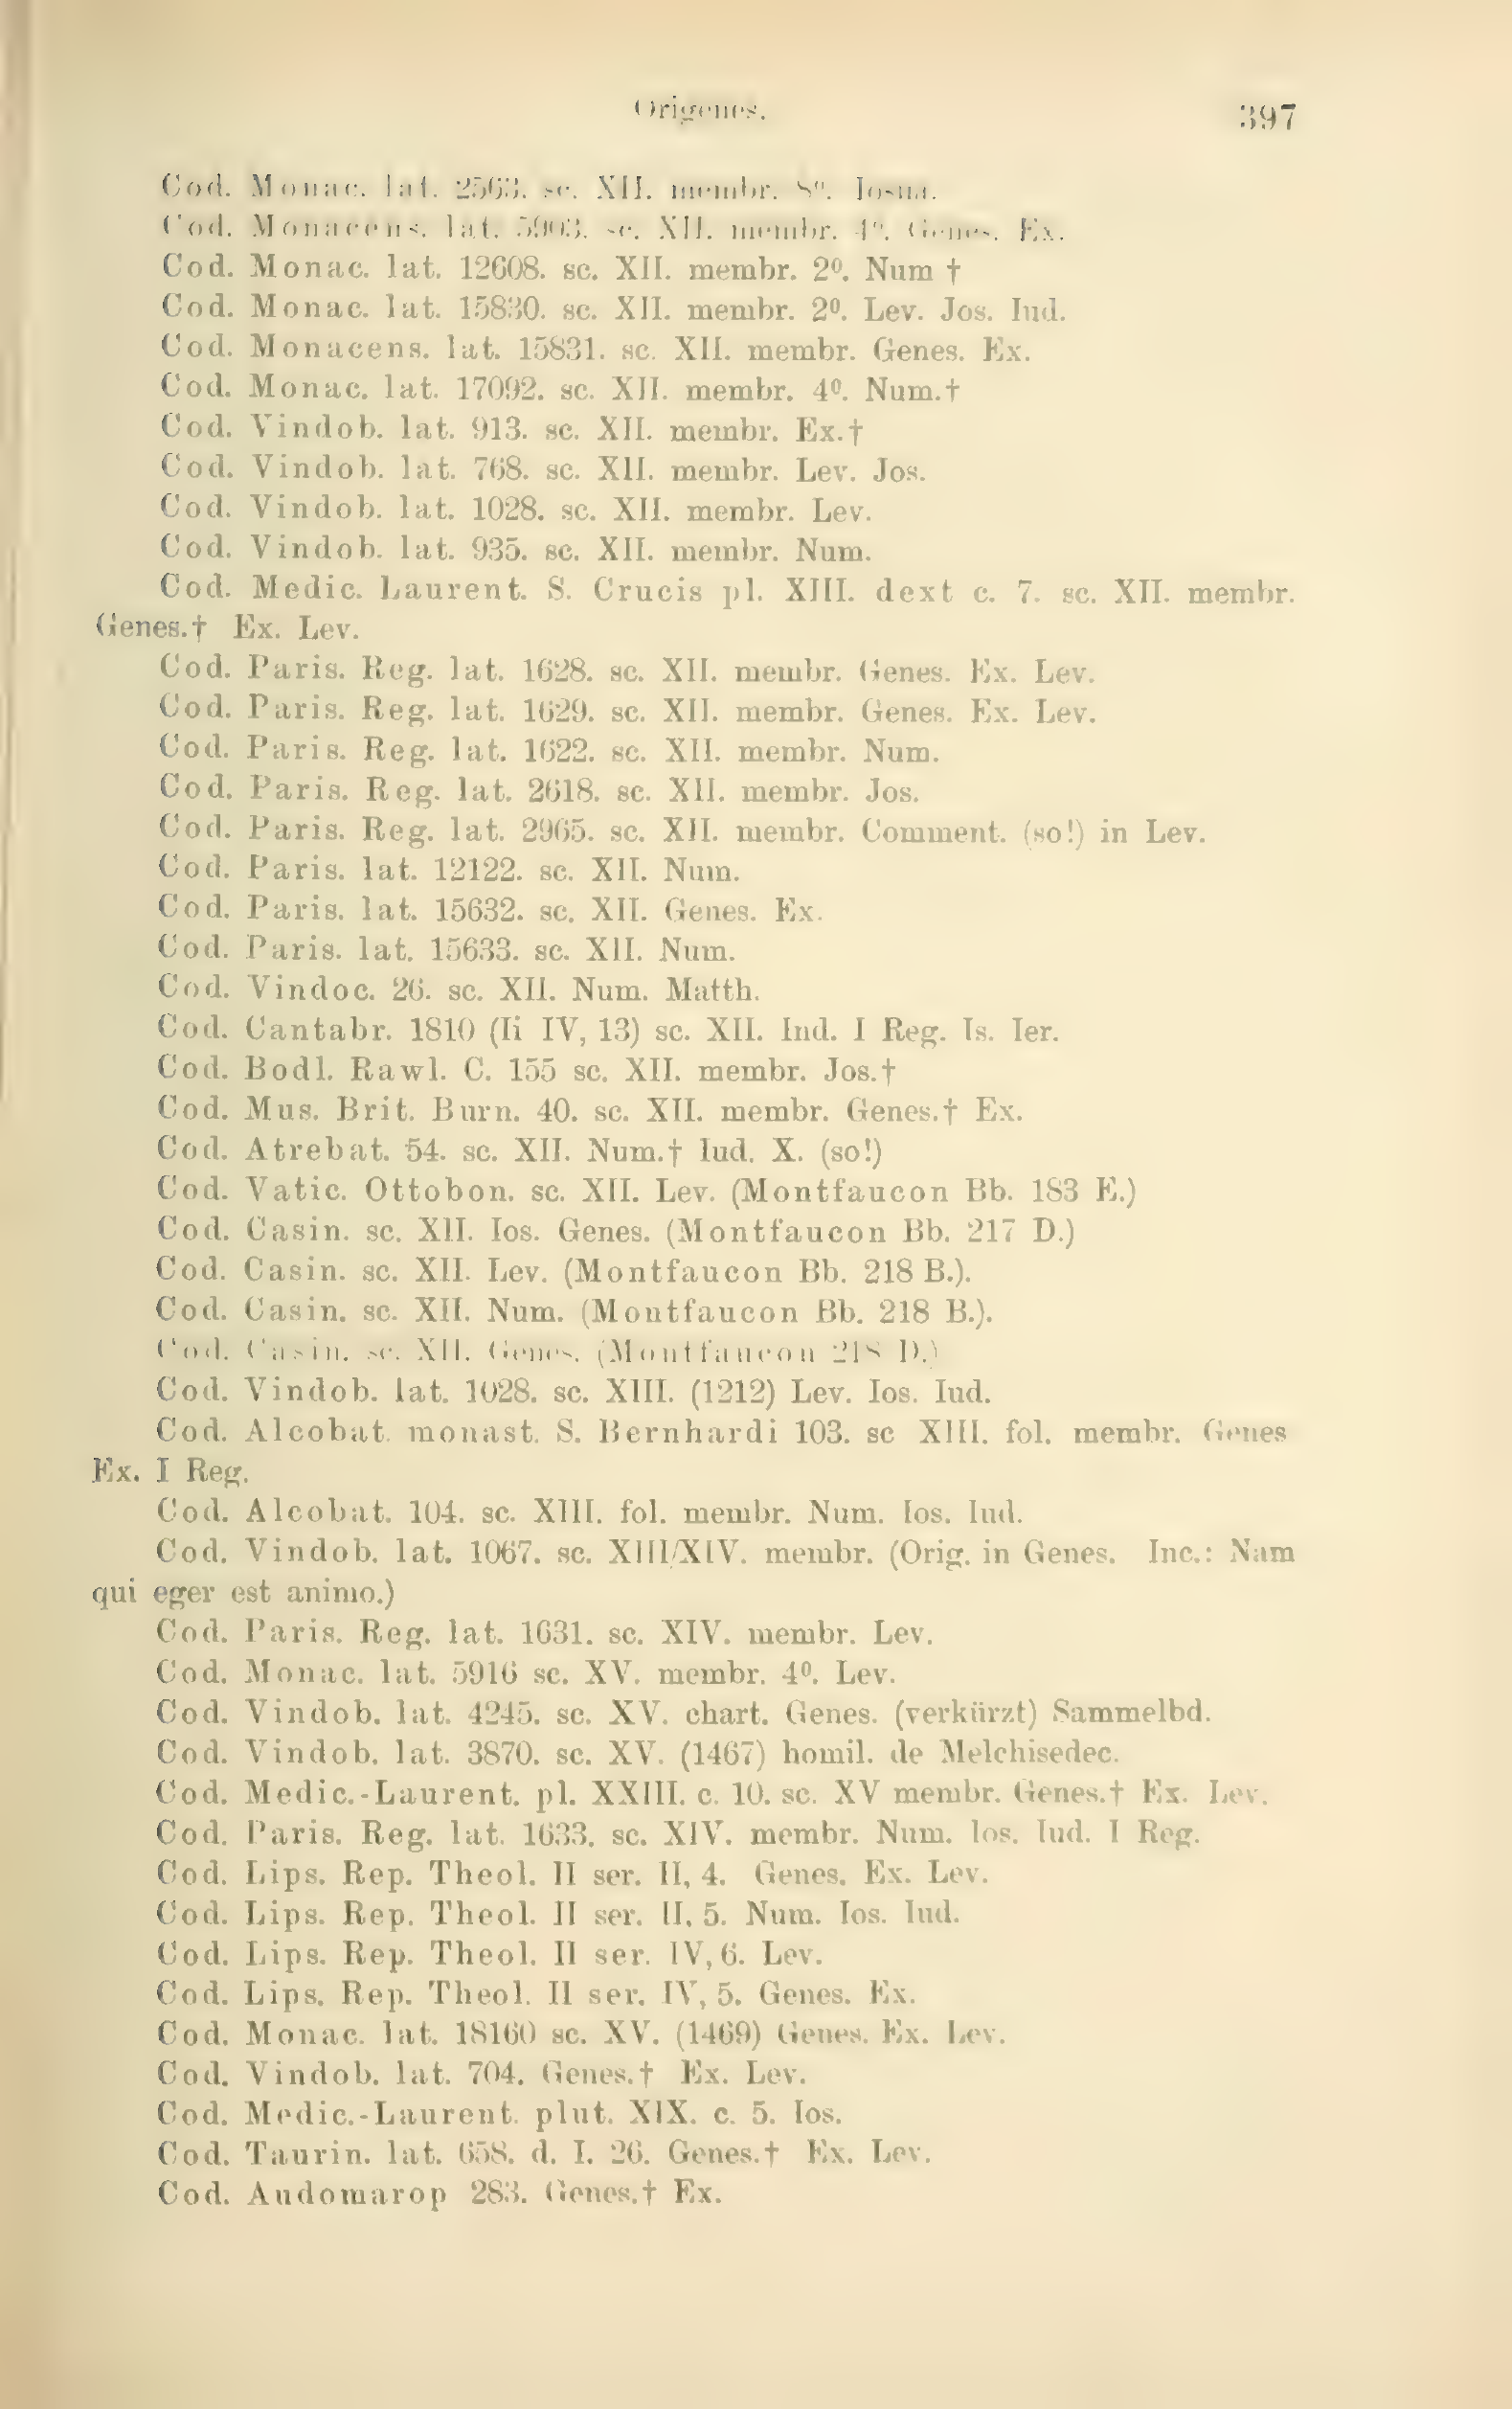 Origenes. 397
Cod. Monac. lat. 2563. sc. XII. membr. 8⁰. Iosua.
Cod. Monacens. lat. 5903. sc. XII. membr. 4⁰. Genes. Ex.
Cod. Monac. lat. 12608. sc. XII. membr. 2⁰. Num †
Cod. Monac. lat. 15830. sc. XII. membr. 2⁰. Lev. Jos. Iud.
Cod. Monacens. lat. 15831. sc. XII. membr. Genes. Ex.
Cod. Monac. lat. 17092. sc. XII. membr. 4⁰. Num.†
Cod. Vindob. lat. 913. sc. XII. membr. Ex.†
Cod. Vindob. lat. 768. sc. XII. membr. Lev. Jos.
Cod. Vindob. lat. 1028. sc. XII. membr. Lev.
Cod. Vindob. lat. 935. sc. XII. membr. Num.
Cod. Medic. Laurent. S. Crucis pl. XIII. dext c. 7. sc. XII. membr.
Genes.† Ex. Lev.
Cod. Paris. Reg. lat. 1628. sc. XII. membr. Genes. Ex. Lev.
Cod. Paris. Reg. lat. 1629. sc. XII. membr. Genes. Ex. Lev.
Cod. Paris. Reg. lat. 1622. sc. XII. membr. Num.
Cod. Paris. Reg. lat. 2618. sc. XII. membr. Jos.
Cod. Paris. Reg. lat. 2965. sc. XII. membr. Comment. (so!) in Lev.
Cod. Paris. lat. 12122. sc. XII. Num.
Cod. Paris. lat. 15632. sc. XII. Genes. Ex.
Cod. Paris. lat. 15633. sc. XII. Num.
Cod. Vindoc. 26. sc. XII. Num. Matth.
Cod. Cantabr. 1810 (Ii IV, 13) sc. XII. Ind. I Reg. Is. Ier.
Cod. Bodl. Rawl. C. 155 sc. XII. membr. Jos.†
Cod. Mus. Brit. Burn. 40. sc. XII. membr. Genes.† Ex.
Cod. Atrebat. 54. sc. XII. Num.† Iud. X. (so!)
Cod. Vatic. Ottobon. sc. XII. Lev. (Montfaucon Bb. 183 E.)
Cod. Casin. sc. XII. Ios. Genes. (Montfaucon Bb. 217 D.)
Cod. Casin. sc. XII. Lev. (Montfaucon Bb. 218 B.).
Cod. Casin. sc. XII. Num. (Montfaucon Bb. 218 B.).
Cod. Casin. sc. XII. Genes. (Montfaucon 218 D.)
Cod. Vindob. lat. 1028. sc. XIII. (1212) Lev. Ios. Iud.
Cod. Alcobat. monast. S. Bernhardi 103. sc XIII. fol. membr. Genes
Ex. I Reg.
Cod. Alcobat. 104. sc. XIII. fol. membr. Num. Ios. Iud.
Cod. Vindob. lat. 1067. sc. XIII/XIV. membr. (Orig. in Genes. Inc.: Nam
qui eger est animo.)
Cod. Paris. Reg. lat. 1631. sc. XIV. membr. Lev.
Cod. Monac. lat. 5916 sc. XV. membr. 4⁰. Lev.
Cod. Vindob. lat. 4245. sc. XV. chart. Genes. (verkürzt) Sammelbd.
Cod. Vindob. lat. 3870. sc. XV. (1467) homil. de Melchisedec.
Cod. Medic.-Laurent. pl. XXIII. c. 10. sc. XV membr. Genes.† Ex. Lev.
Cod. Paris. Reg. lat. 1633. sc. XIV. membr. Num. Ios. Iud. I Reg.
Cod. Lips. Rep. Theol. II ser. II, 4. Genes. Ex. Lev.
Cod. Lips. Rep. Theol. II ser. II, 5. Num. Ios. Iud.
Cod. Lips. Rep. Theol. II ser. IV, 6. Lev.
Cod. Lips. Rep. Theol. II ser. IV, 5. Genes. Ex.
Cod. Monac. lat. 18160 sc. XV. (1469) Genes. Ex. Lev.
Cod. Vindob. lat. 704. Genes.† Ex. Lev.
Cod. Medic.-Laurent. plut. XIX. c. 5. Ios.
Cod. Taurin. lat. 658. d. I. 26. Genes.† Ex. Lev.
Cod. Audomarop 283. Genes.† Ex.